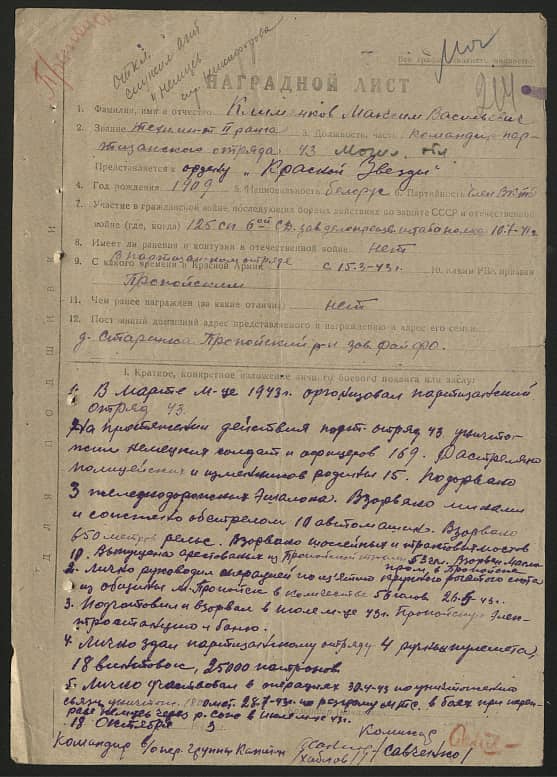 НАГРАДНОЙ ЛИСТ
1. Фамилия, имя и отчество Клименков Максим Васильевич
2. Звание техник-инт II ранга 3. Должность, часть командир пар-
тизанского отряда 43 Могил. обл
Представляется к ордену „Красной Звезды"
4. Год рождения 1909 5. Национальность белорус 6. Партийность член ВКП(б)
7. Участие в гражданской войне, последующих боевых действиях по защите СССР и отечественной
войне (где, когда) 125 сп 6ой СД зав делопроизв. штаба полка 10.7.41г.
8. Имеет ли ранения и контузии в отечественной войне нет
в партизанском отряде
9. С какого времени в Красной Армии с 15.3.43г. 10. Каким РВК призван
Пропойским
11. Чем ранее награжден (за какие отличия) нет
12. Постоянный домашний адрес представляемого к награждению и адрес его семьи
д. Старинка Пропойский р-н зав. райфо.
для подшивки
I. Краткое, конкретное изложение личного боевого подвига или заслуг
1. В Марте м-це 1943г. организовал партизанский
отряд 43.
На протяжении действия парт. отряд 43 уничто-
жил немецких солдат и офицеров 169. Расстреляно
полицейских и изменников родины 15. Подорвано
3 железнодорожных эшалона. Взорвано минами
и сожжено обстрелом 10 автомашин. Взорвано
650 метров рельс. Взорвано шоссейных и трактовых мостов
10. Выпущено арестованых из Пропойской тюрьмы 53 чел. Взорван
в Пропойске
2. Лично руководил операцией по изъятию крупного рогатого скота
из общины м. Пропойск в количестве голов 26.6-43г.
3. Подготовил и взорвал в июле м-це 43г. Пропойскую элек-
тростанцию и баню.
4. Лично здал партизанскому отряду 4 ручных пулемета,
18 винтовок, 25000 патронов
5. Лично участвовал в операциях 30.4-43 по уничтожению
связи, 28.7-43г. по разгрому МТС, в боях при пере-
праве немцев через р. Сож в июле м-це 43г.
18 Октября 3
Командир опер. группы Капитан
Савченко